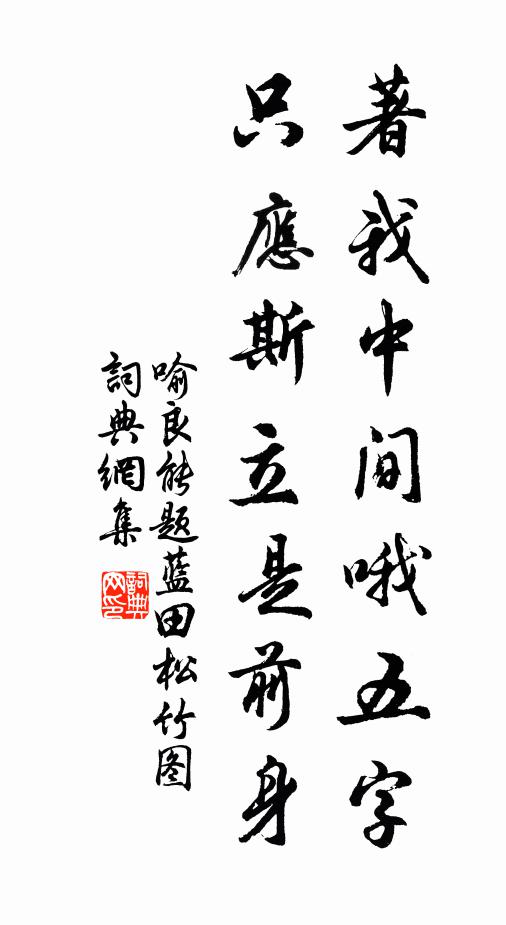 著我中间哦五字
只應斯立是前身
喻良能题蓝田松竹图
詞典網集
詞典网印